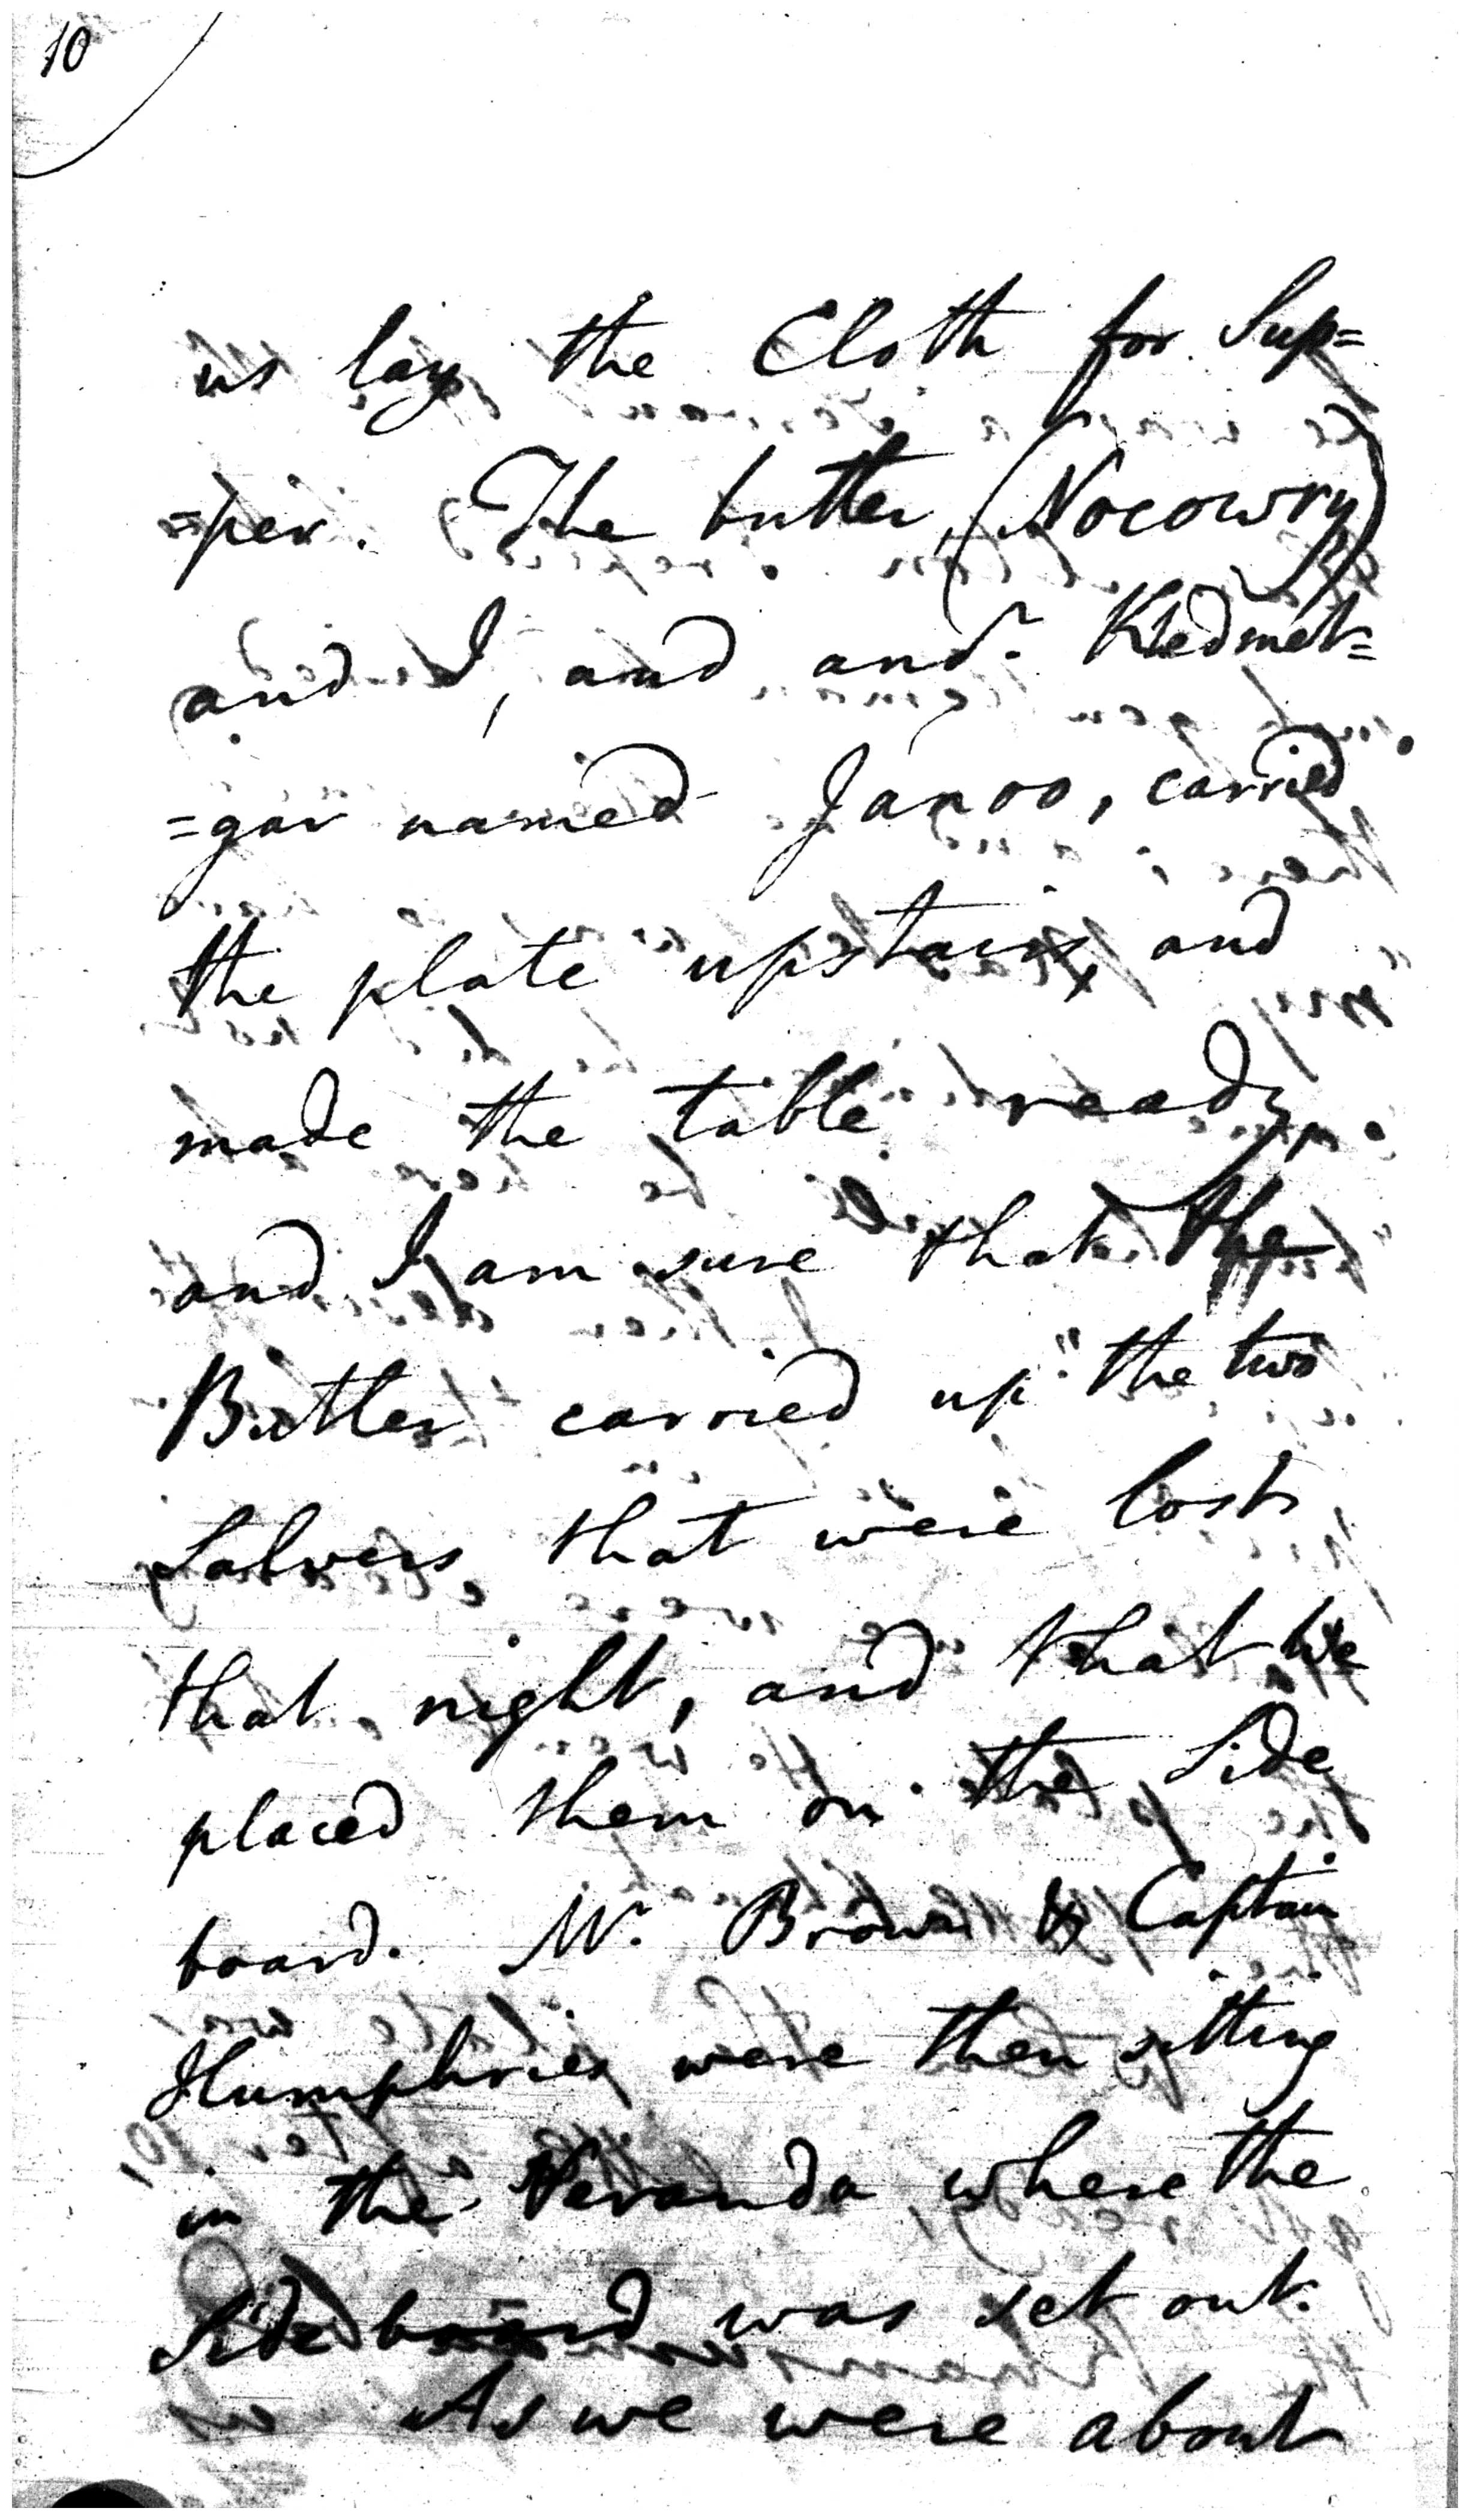 10
us lay the Cloth for Sup=
=per. The butler, (Nocowry)
and I, and and.r Kledmet=
=gar named Janoo, carried
the plate upstairs, and
made the table ready,
and I am sure that the
Butler carried up the two
Salvers that were lost
that night, and that we
placed them on the Side
board. Mr. Brown & Captain
Humphries were then sitting
in the Veranda, where the
Side board was set out.
As we were about